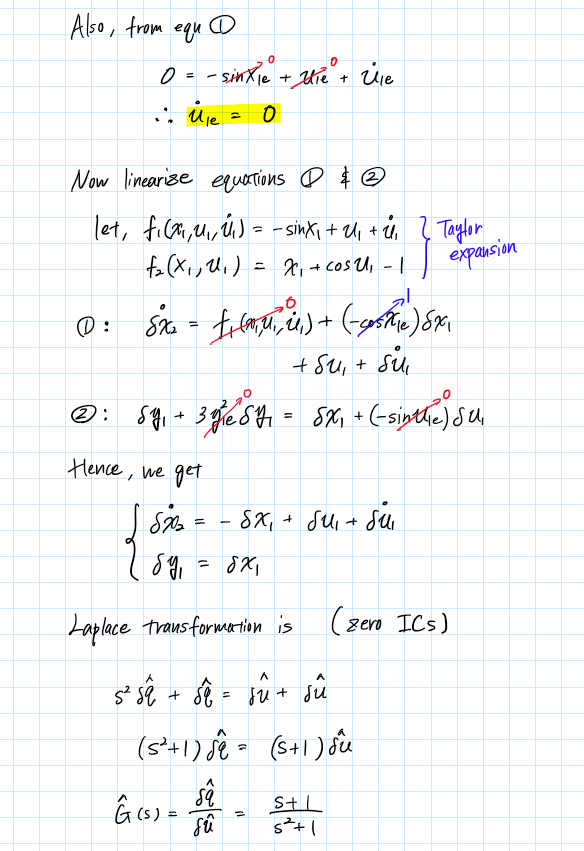 Also, from equ ①
0 = - sinx₁ₑ + u₁ₑ + u̇₁ₑ
0 0
∴ u̇₁ₑ = 0
Now linearize equations ① & ②
let, f₁(x₁,u₁,u̇₁) = -sinx₁ + u₁ + u̇₁
f₂(x₁,u₁) = x₁ + cosu₁ - 1
} Taylor expansion
①: δẋ₂ = f₁(x₁,u₁,u̇₁) + (-cosx₁ₑ)δx₁
0 1
+ δu₁ + δu̇₁
②: δy₁ + 3y₁ₑ²δy₁ = δx₁ + (-sinu₁ₑ)δu₁
0 0
Hence, we get
{ δẋ₂ = - δx₁ + δu₁ + δu̇₁
δy₁ = δx₁
Laplace transformation is (zero ICs)
s² δq̂ + δq̂ = δû + δû
(s²+1) δq̂ = (s+1) δû
Ĝ(s) = δq̂/δû = (s+1)/(s²+1)